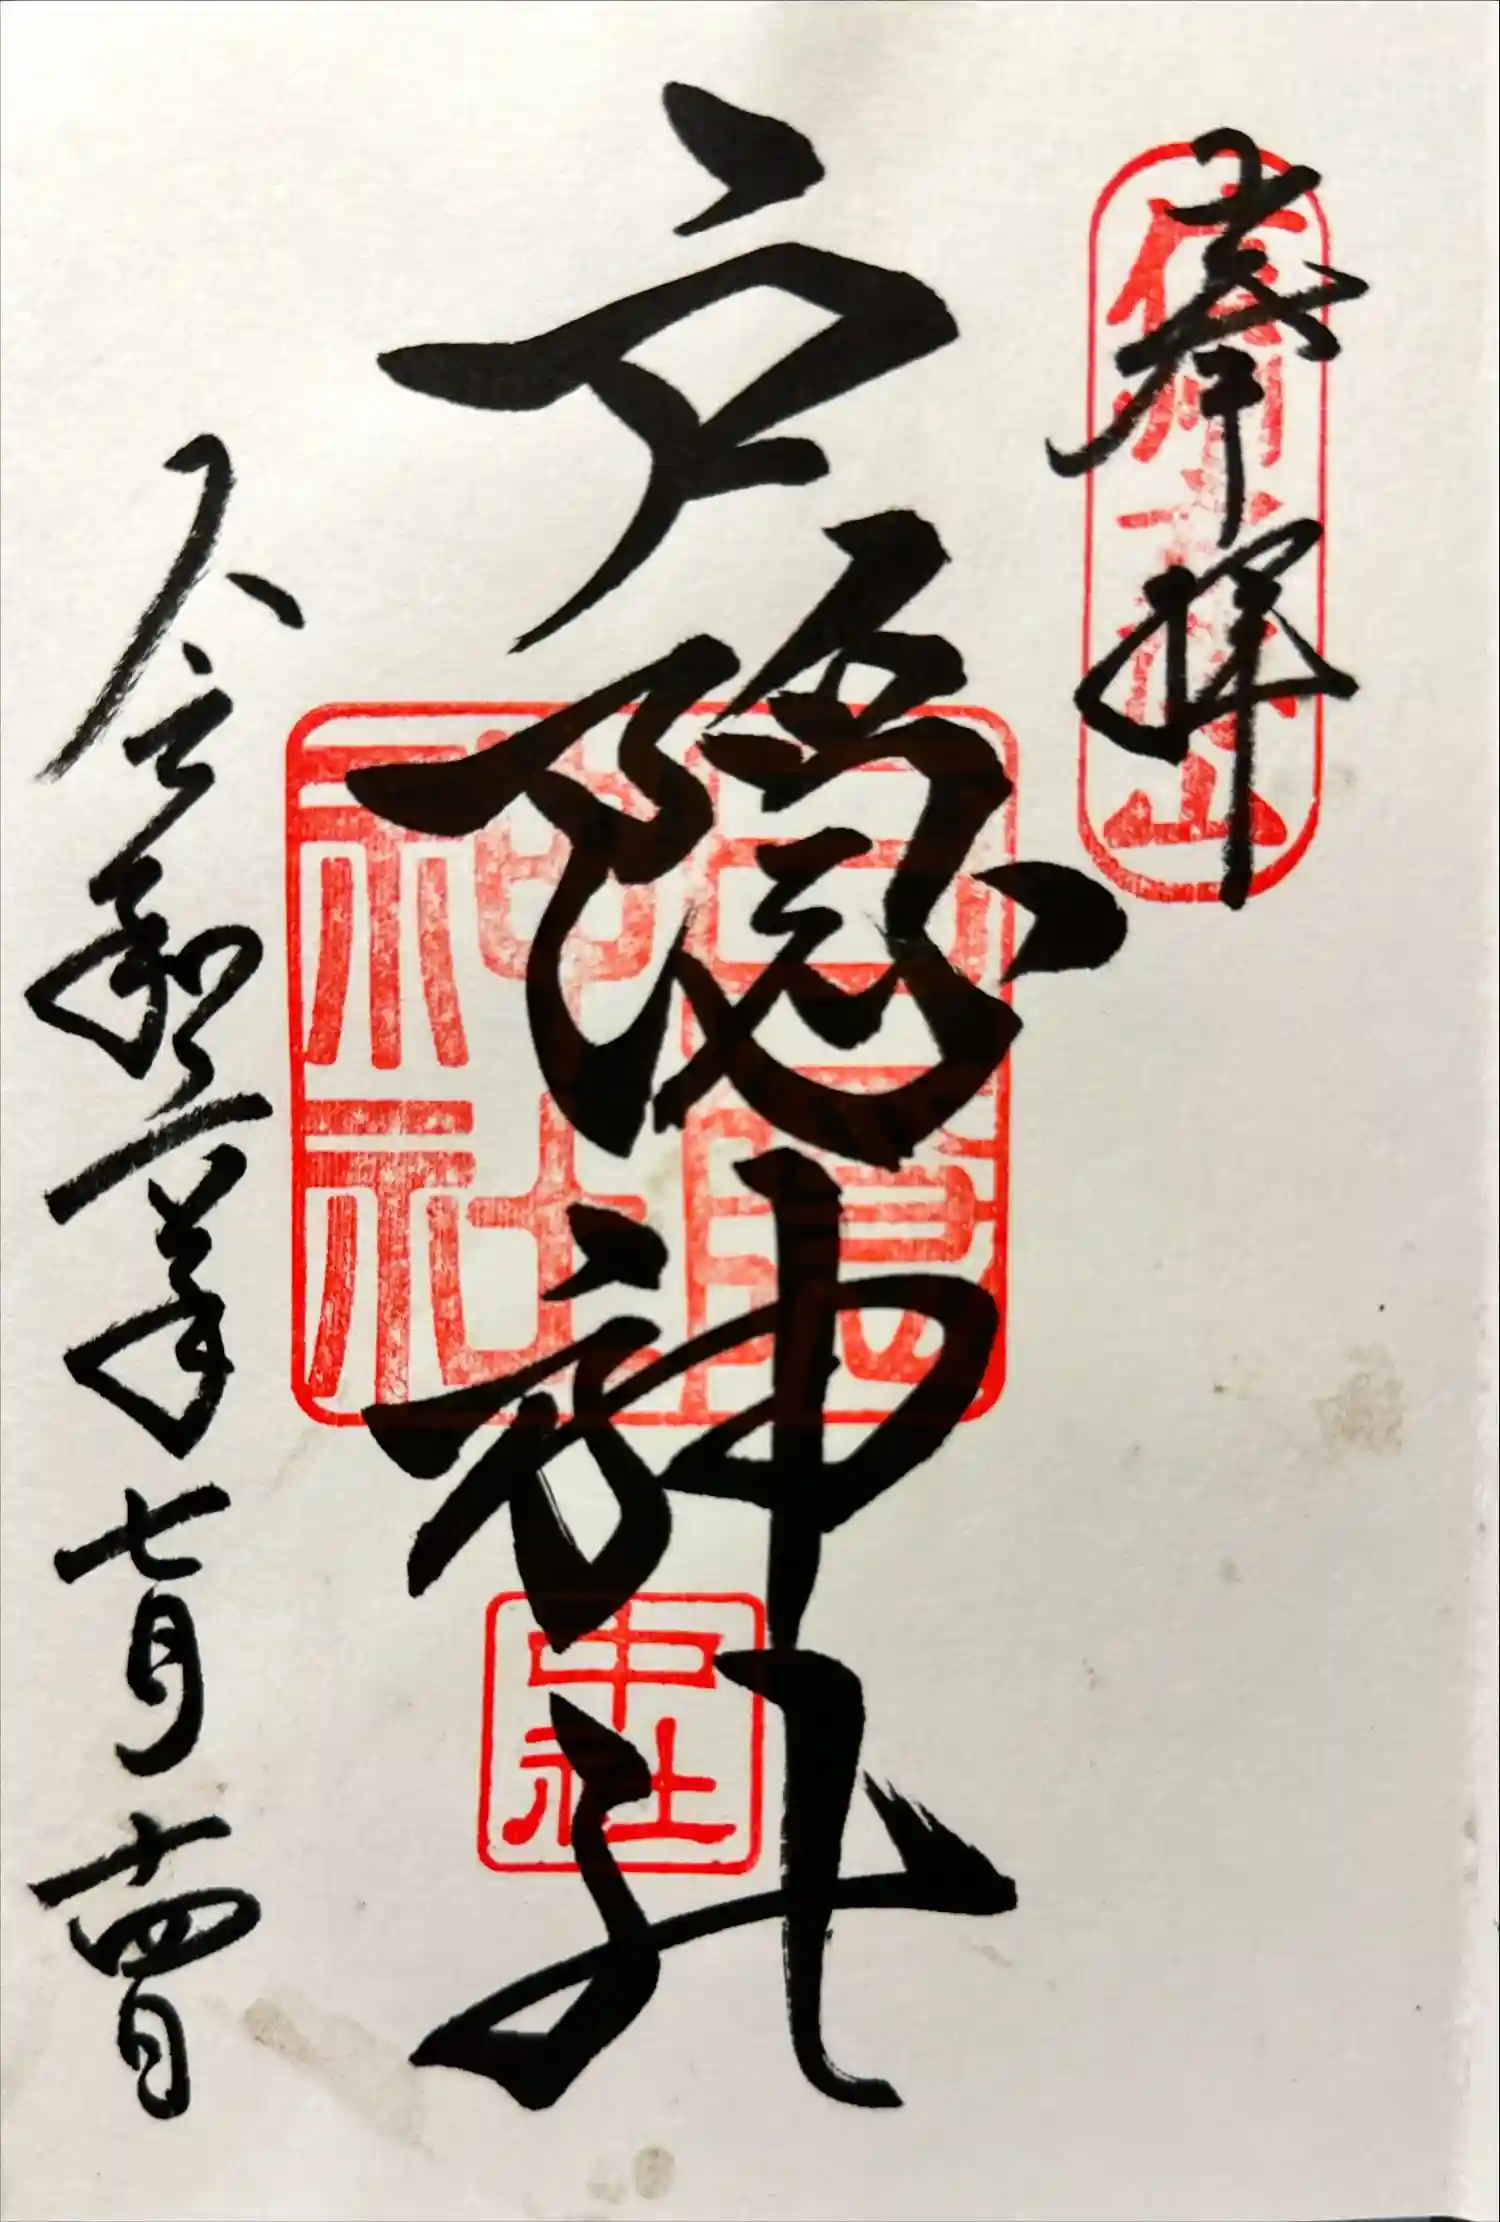 奉拝
信州戸隠山
戸隠神社
戸隠神社
中社
令和二年七月十四日